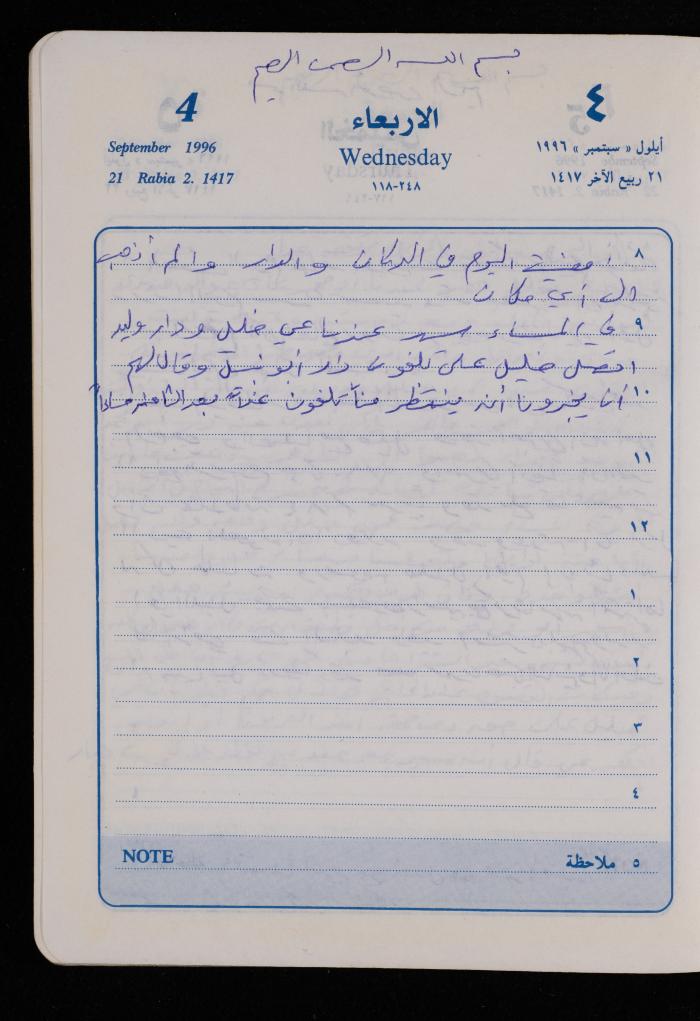 بسم الله الرحمن الرحيم
4
الاربعاء
٤
September 1996
Wednesday
أيلول « سبتمبر » ١٩٩٦
21 Rabia 2. 1417
٢٤٨-١١٨
٢١ ربيع الآخر ١٤١٧
٨ أمضيت اليوم في الدكان والدار ولم أذهب
الى أي مكان
٩ في المساء سهر عندنا خليل ودار وليد
اتصل خليل على تلفون دار أبو وقال لهم
١٠ أن يخبرونا أنه ينتظر منا تلفون غداً بعد الثامنة مساءاً
١١
١٢
١
٢
٣
٤
NOTE
٥ ملاحظة